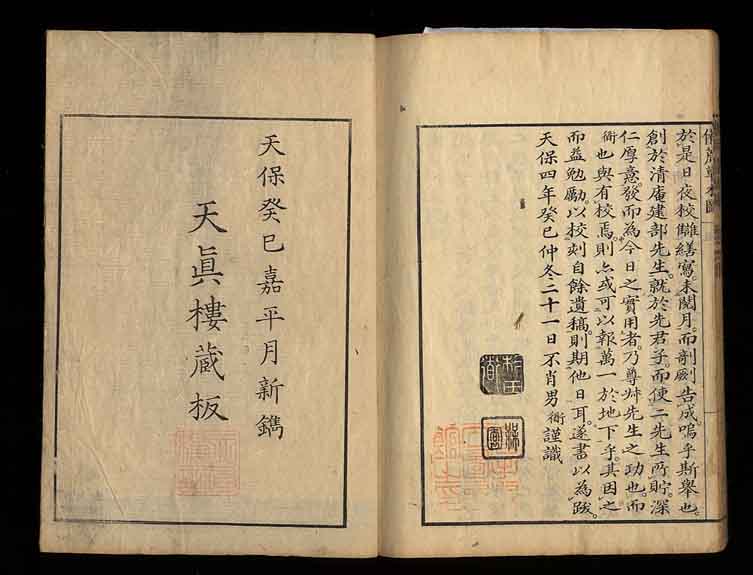 備荒草木圖
於是日夜校讎繕寫。未閱月。而剞劂告成。嗚乎斯舉也。
創於清庵建部先生。就於先君子。而使二先生所貯。深
仁厚意。發而為今日之實用者。乃尊艸先生之功也。而
衜也與有校焉。則亦或可以報萬一於地下乎。其因之
而益勉勵。以校刻自餘遺稿。則期他日耳。遂書以為跋。
天保四年癸巳仲冬二十一日不肖男 衜謹識
天保癸巳嘉平月新鐫
天眞樓蔵板